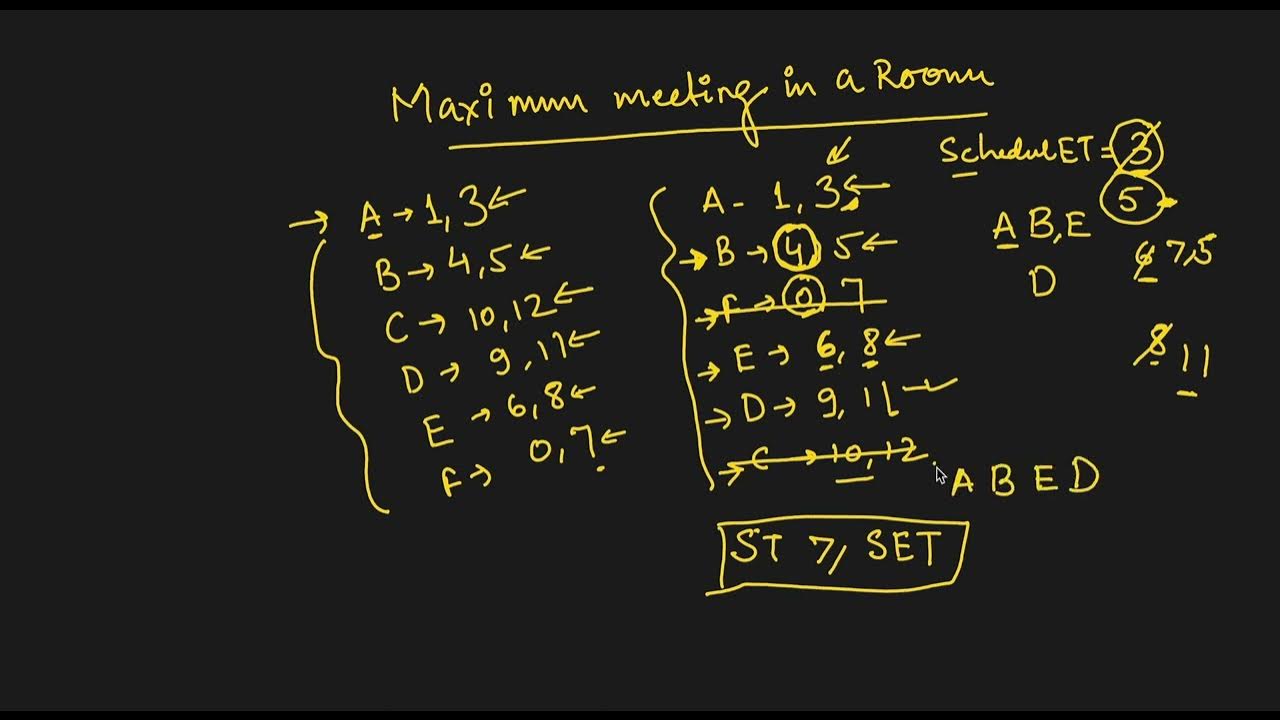 Maximum meeting in a Room
SchedulET = 3
5
A → 1, 3
B → 4, 5
C → 10, 12
D → 9, 11
E → 6, 8
F → 0, 7
A - 1, 3
B → 4, 5
F → 0, 7
E → 6, 8
D → 9, 11
C → 10, 12
A B, E
D
7, 5
8 11
A B E D
ST ≥ SET